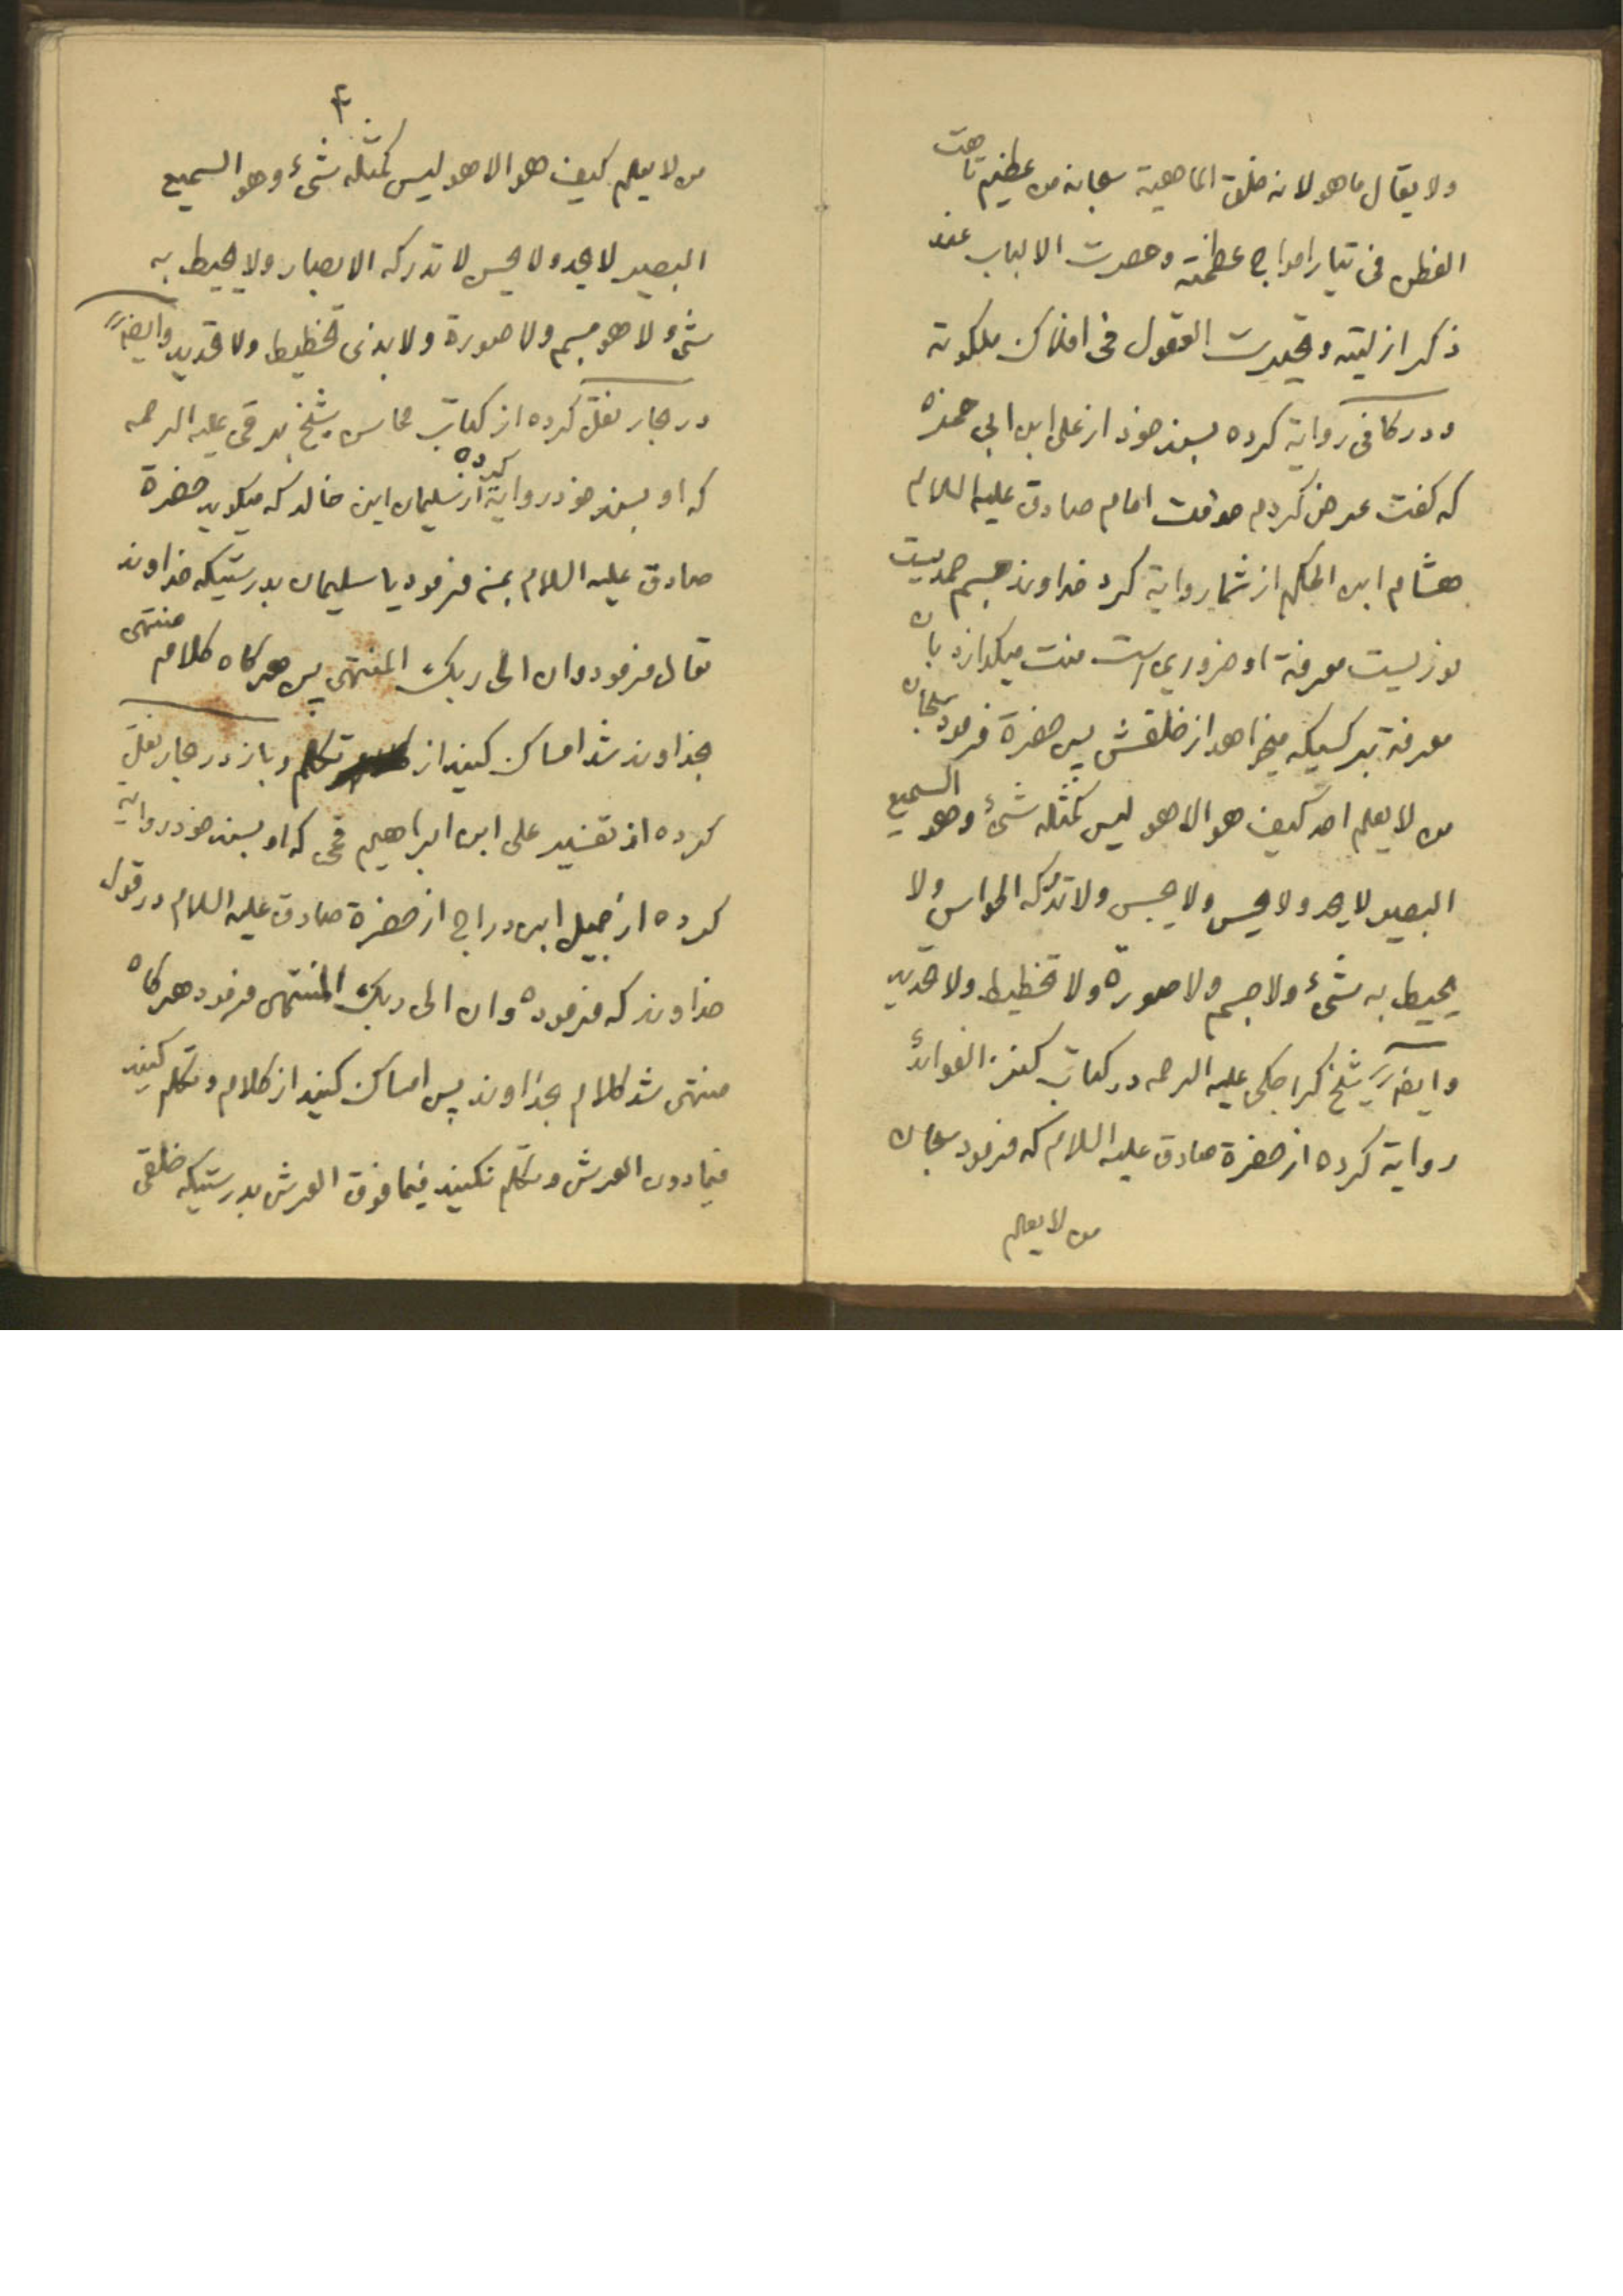 ولا یقال ما هو لانه خلق الماهیة سبحانه من عظیم تاهت
الفطن فی تیار امواج عظمته وحصرت الالباب عند
ذکر ازلیته وتحیرت العقول فی افلاک ملکوته
ودر کافی روایة کرده بسند خود از علی ابن ابی حمزه
که گفت عرض کردم خدمت امام صادق علیه السلام
هشام ابن الحکم از شما روایة کرد خداوند جسم صمدیست
نوریست معرفة او ضروری است منت میگذارد بان
معرفة بر کسیکه میخواهد از خلقش پس حضرة فرمود سبحان
من لا یعلم احد کیف هو الا هو لیس کمثله شئ وهو السمیع
البصیر لا یحد ولا یحس ولا یجس ولا تدرکه الحواس ولا
یحیط به شئ ولا جسم ولا صورة ولا تخطیط ولا تحدید
وایضاً شیخ کراجکی علیه الرحمه در کتاب کنز الفوائد
روایة کرده از حضرة صادق علیه السلام که فرمود سبحان
من لا یعلم
۴
من لا یعلم کیف هو الا هو لیس کمثله شئ وهو السمیع
البصیر لا یحد ولا یحس لا تدرکه الابصار ولا یحیط به
شئ ولا هو جسم ولا صورة ولا بذی تخطیط ولا تحدید وایضاً
در بحار نقل کرده از کتاب محاسن شیخ برقی علیه الرحمه
که او بسند خود روایة کرده از سلیمان ابن خالد که میگوید حضرة
صادق علیه السلام بمن فرمود یا سلیمان بدرستیکه خداوند
تعالی فرمود وان الی ربک المنتهی پس هرگاه کلام منتهی
بخداوند شد امساک کنید از تکلم وباز در بحار نقل
کرده از تفسیر علی ابن ابراهیم قمی که او بسند خود روایة
کرده از جمیل ابن دراج از حضرة صادق علیه السلام در قول
خداوند که فرموده وان الی ربک المنتهی فرمود هرگاه
منتهی شد کلام بخداوند پس امساک کنید از کلام وتکلم کنید
فیما دون العرش وتکلم نکنید فیما فوق العرش بدرستیکه خلقی